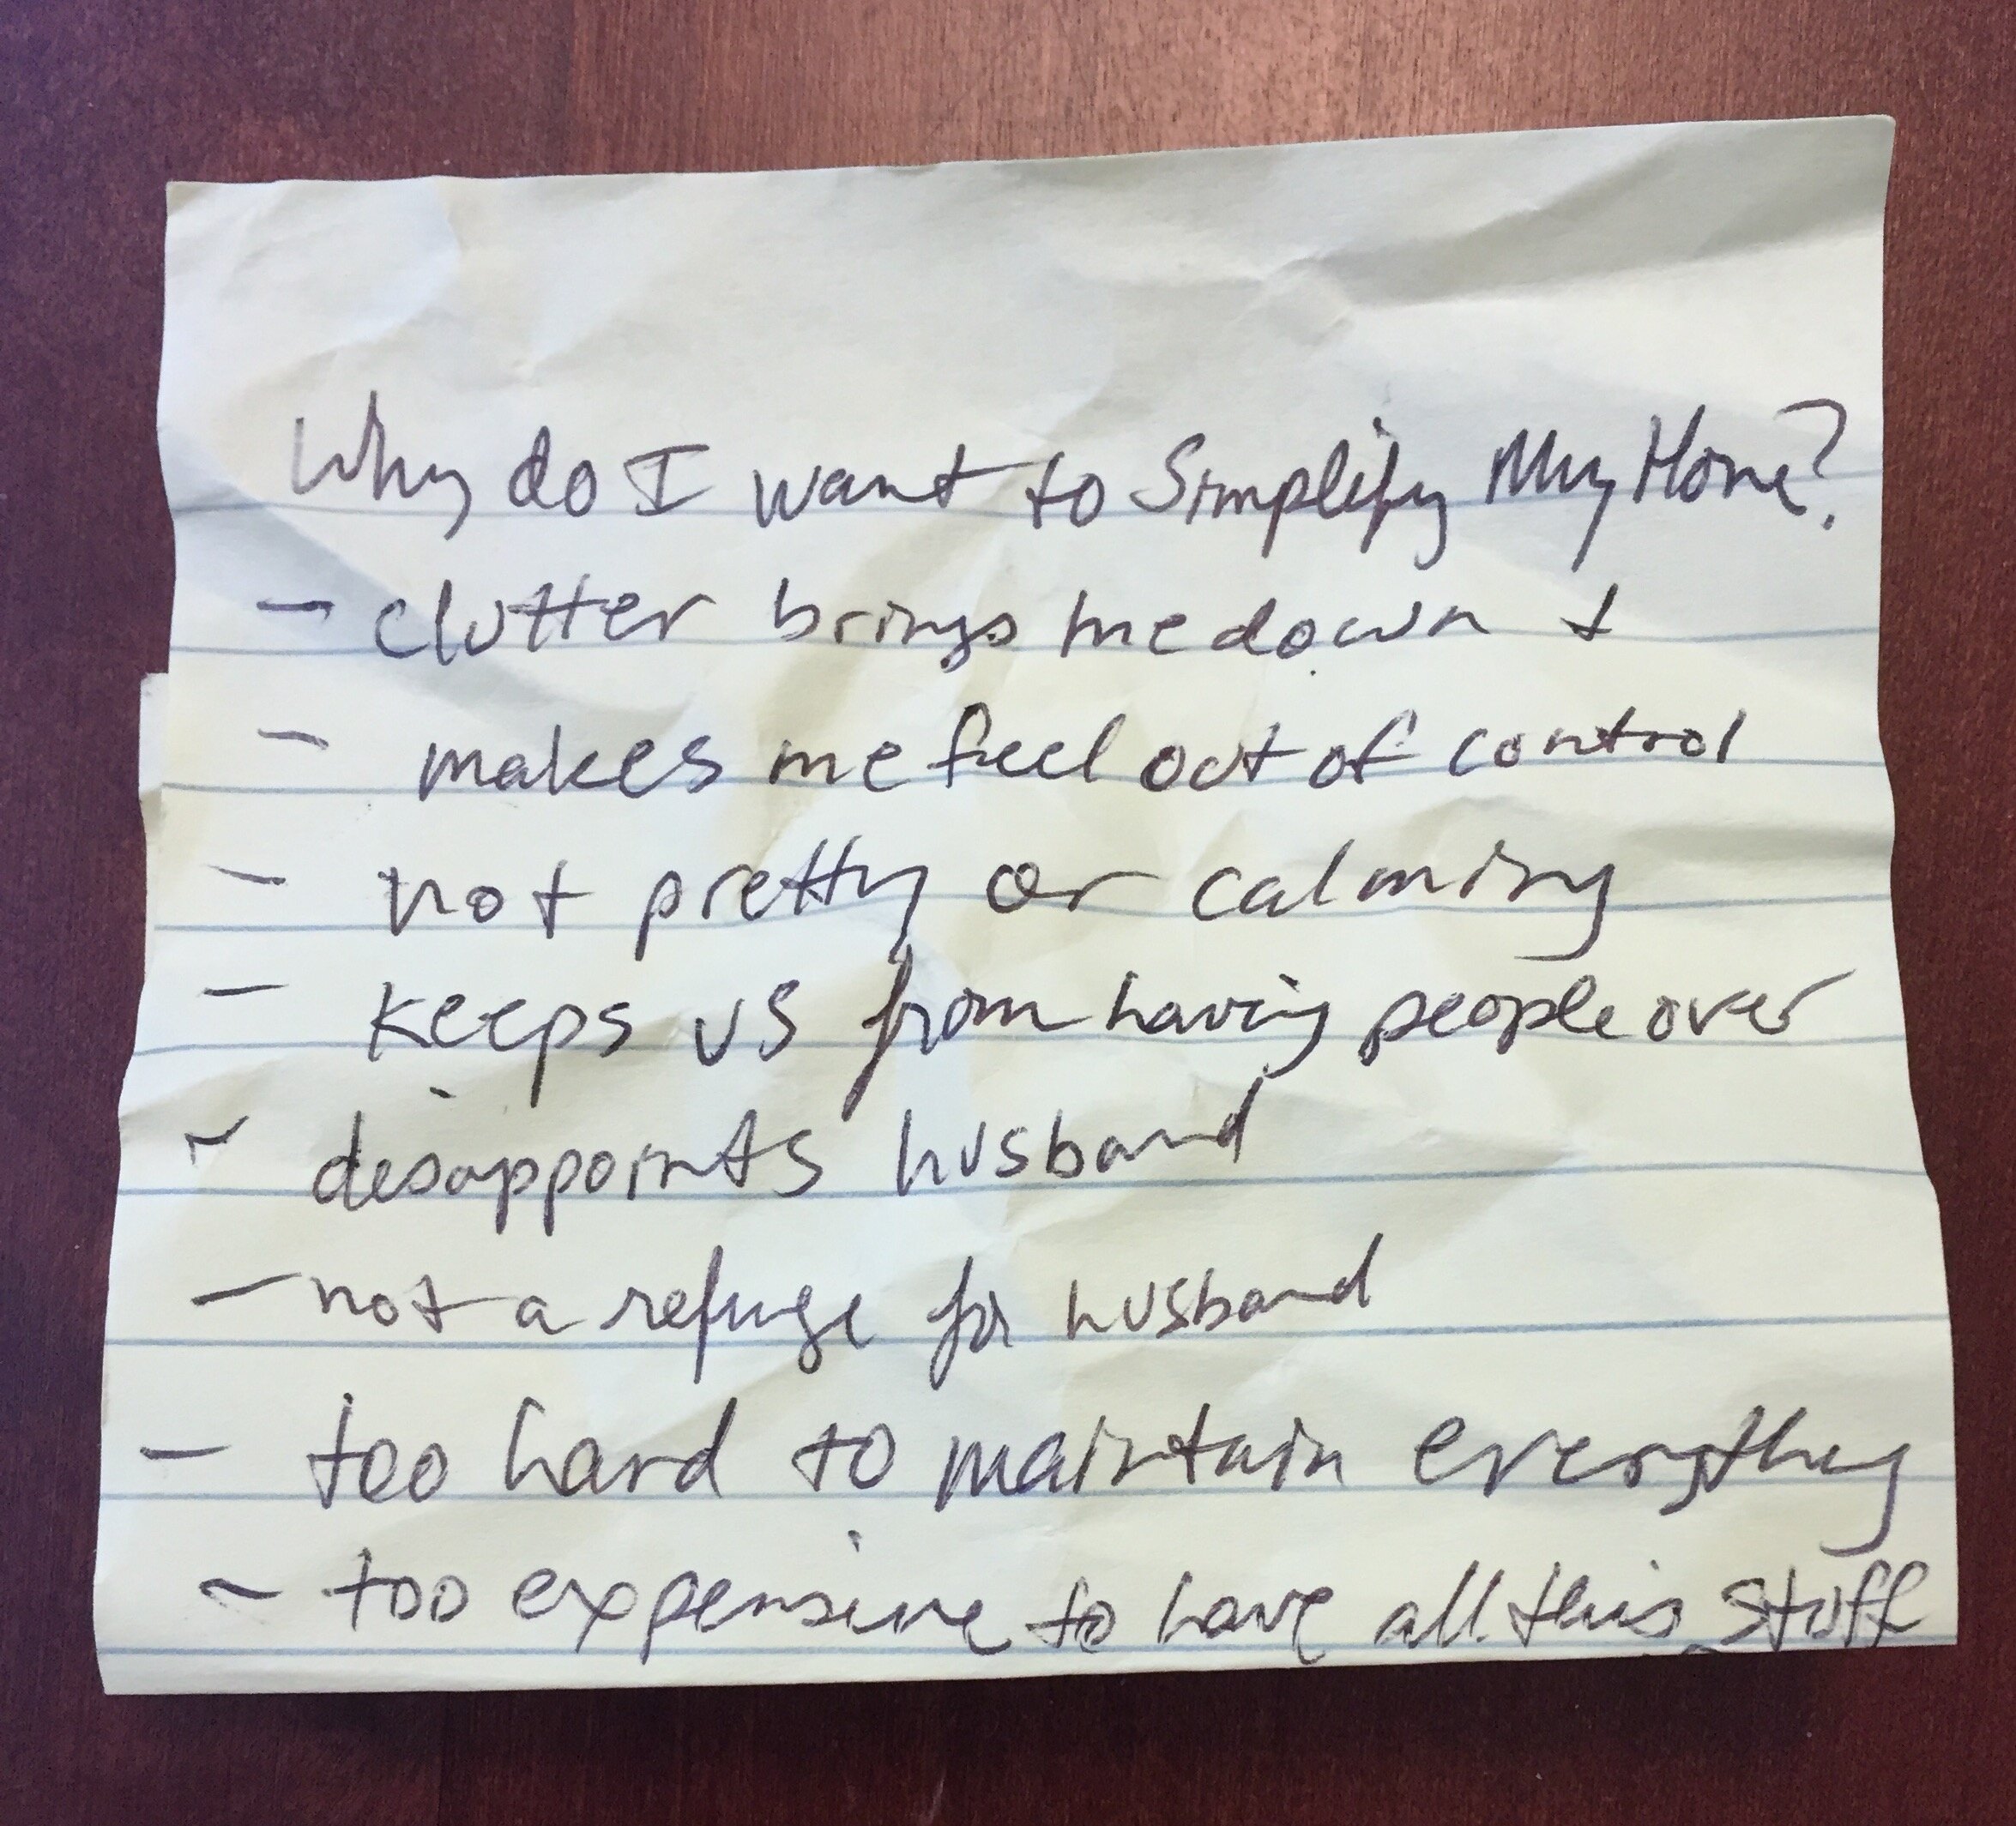 Why do I want to Simplify My Home?
- clutter brings me down +
- makes me feel out of control
- not pretty or calming
- keeps us from having people over
- disappoints husband
- not a refuge for husband
- too hard to maintain everything
- too expensive to have all this stuff